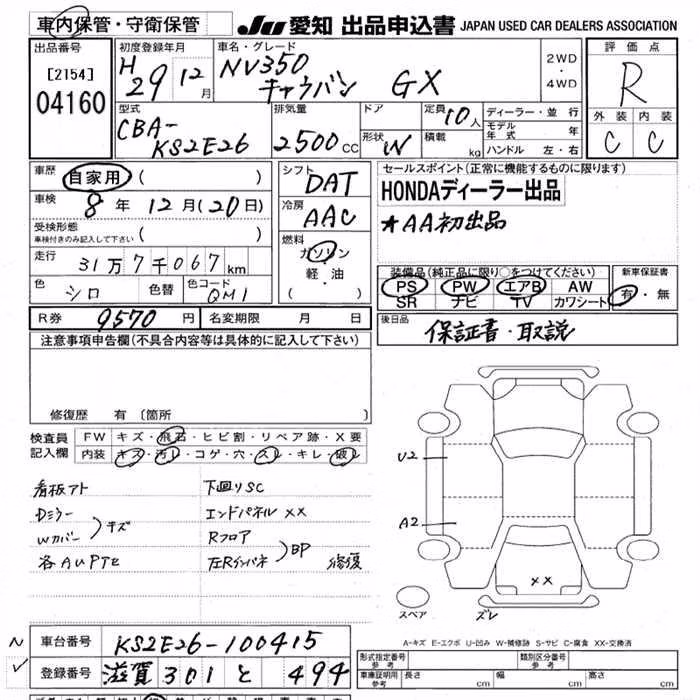 車内保管・守衛保管
JU 愛知 出品申込書 JAPAN USED CAR DEALERS ASSOCIATION
出品番号
[2154]
04160
初度登録年月
H 29 年 12 月
車名・グレード
NV350 キャラバン GX
2WD
・
4WD
評価点
R
外装 内装
C C
型式
CBA-
KS2E26
排気量
2500 CC
ドア
形状 W
定員 10 人
積載 kg
ディーラー・並行
モデル年式 年
ハンドル 左・右
車歴 自家用 ( )
車検 8 年 12 月 (20日)
受検形態
車検付きのみ記入して下さい ( )
走行 31万7千067 km
色 シロ 色替 色コード QM1
シフト
DAT
冷房
AAC
燃料
ガソリン
・
軽・油
( )
セールスポイント(正常に機能するものに限ります)
HONDAディーラー出品
★AA初出品
装備品(純正品に限り○をつけてください)
PS PW エアB AW
SR ナビ TV カワシート
新車保証書
有・無
R券 9570 円 名変期限 月 日
後日品
保証書・取説
注意事項申告欄(不具合内容等は具体的に記入して下さい)
修復歴 有 〔箇所 〕
検査員記入欄
FW キズ・飛石・ヒビ割・リペア跡・X要
内装 キズ・汚レ・コゲ・穴・スレ・キレ・破レ
看板アト 下廻りSC
Dミラー エンドパネル XX
Wカバー キズ Rフロア
各AUPTE 左Rインパネ BP 修復
U2
A2
XX
スペア ズレ
A-キズ E-エクボ U-凹み W-補修跡 S-サビ C-腐食 XX-交換済
N 車台番号 KS2E26-100415
✓ 登録番号 滋賀 301 と 494
形式指定番号
参考
類別区分番号
参考
車庫証明用
参考
長さ cm 幅 cm 高さ cm